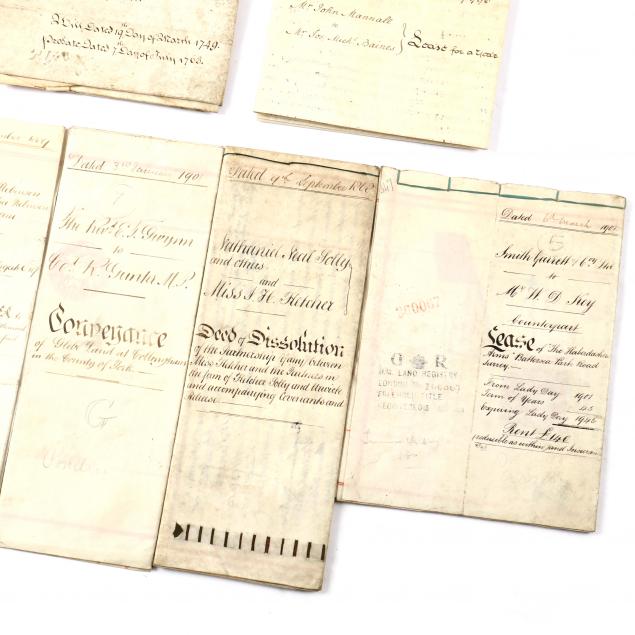 A Will Dated 19th Day of March 1749.
Probate Dated 7th Day of July 1763.
Mr John Mannall
to
Mr Jos. Mich.l Baines
Lease for a Year
Dated 3rd January 190
7
The Revd
Gwynn
to
Col. Rt. Gunter M.P.
Conveyance
of Glebe Land at Collingham
in the County of York
G
Dated 9th September 186
Nathaniel Neal Solly
and others
and
Miss J. H. Fletcher
Deed of Dissolution
of the Partnership if any between
Miss Fletcher and the Partners in
the firm of Fletcher Solly and Urwick
and accompanying Covenants and
Release
Dated 6th March 1901
5
Smith Garrett & Co. Ltd
to
Mr W. D.
Counterpart
Lease of The Haberdashers
Arms Battersea Park Road
Surrey
From Lady Day 1901
Term of Years 45
Expiring Lady Day 1946
Rent £140
(reducible as within) and Insurance
260067
H.M. LAND REGISTRY
LONDON
FREEHOLD TITLE